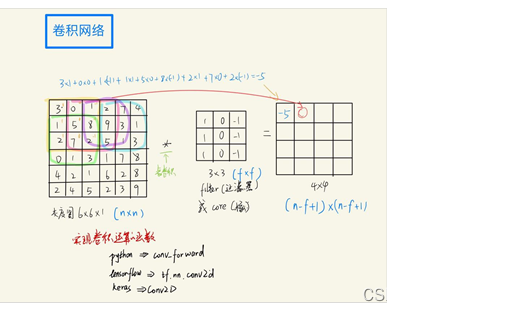 卷积网络
3×1+0×0+1×(-1)+1×1+5×0+8×(-1)+2×1+7×0+2×(-1)=-5
3 0 1 2 7 4
1 5 8 9 3 1
2 7 2 5 1 3
0 1 3 1 7 8
4 2 1 6 2 8
2 4 5 2 3 9
*
1 0 -1
1 0 -1
1 0 -1
=
-5
3×3 (f×f)
4×4
灰度图 6×6×1 (n×n)
filter(过滤器)
或 core (核)
(n-f+1)×(n-f+1)
实现卷积运算的函数
python ⇒ conv_forward
tensorflow ⇒ tf.nn.conv2d
keras ⇒ Conv2D
CS